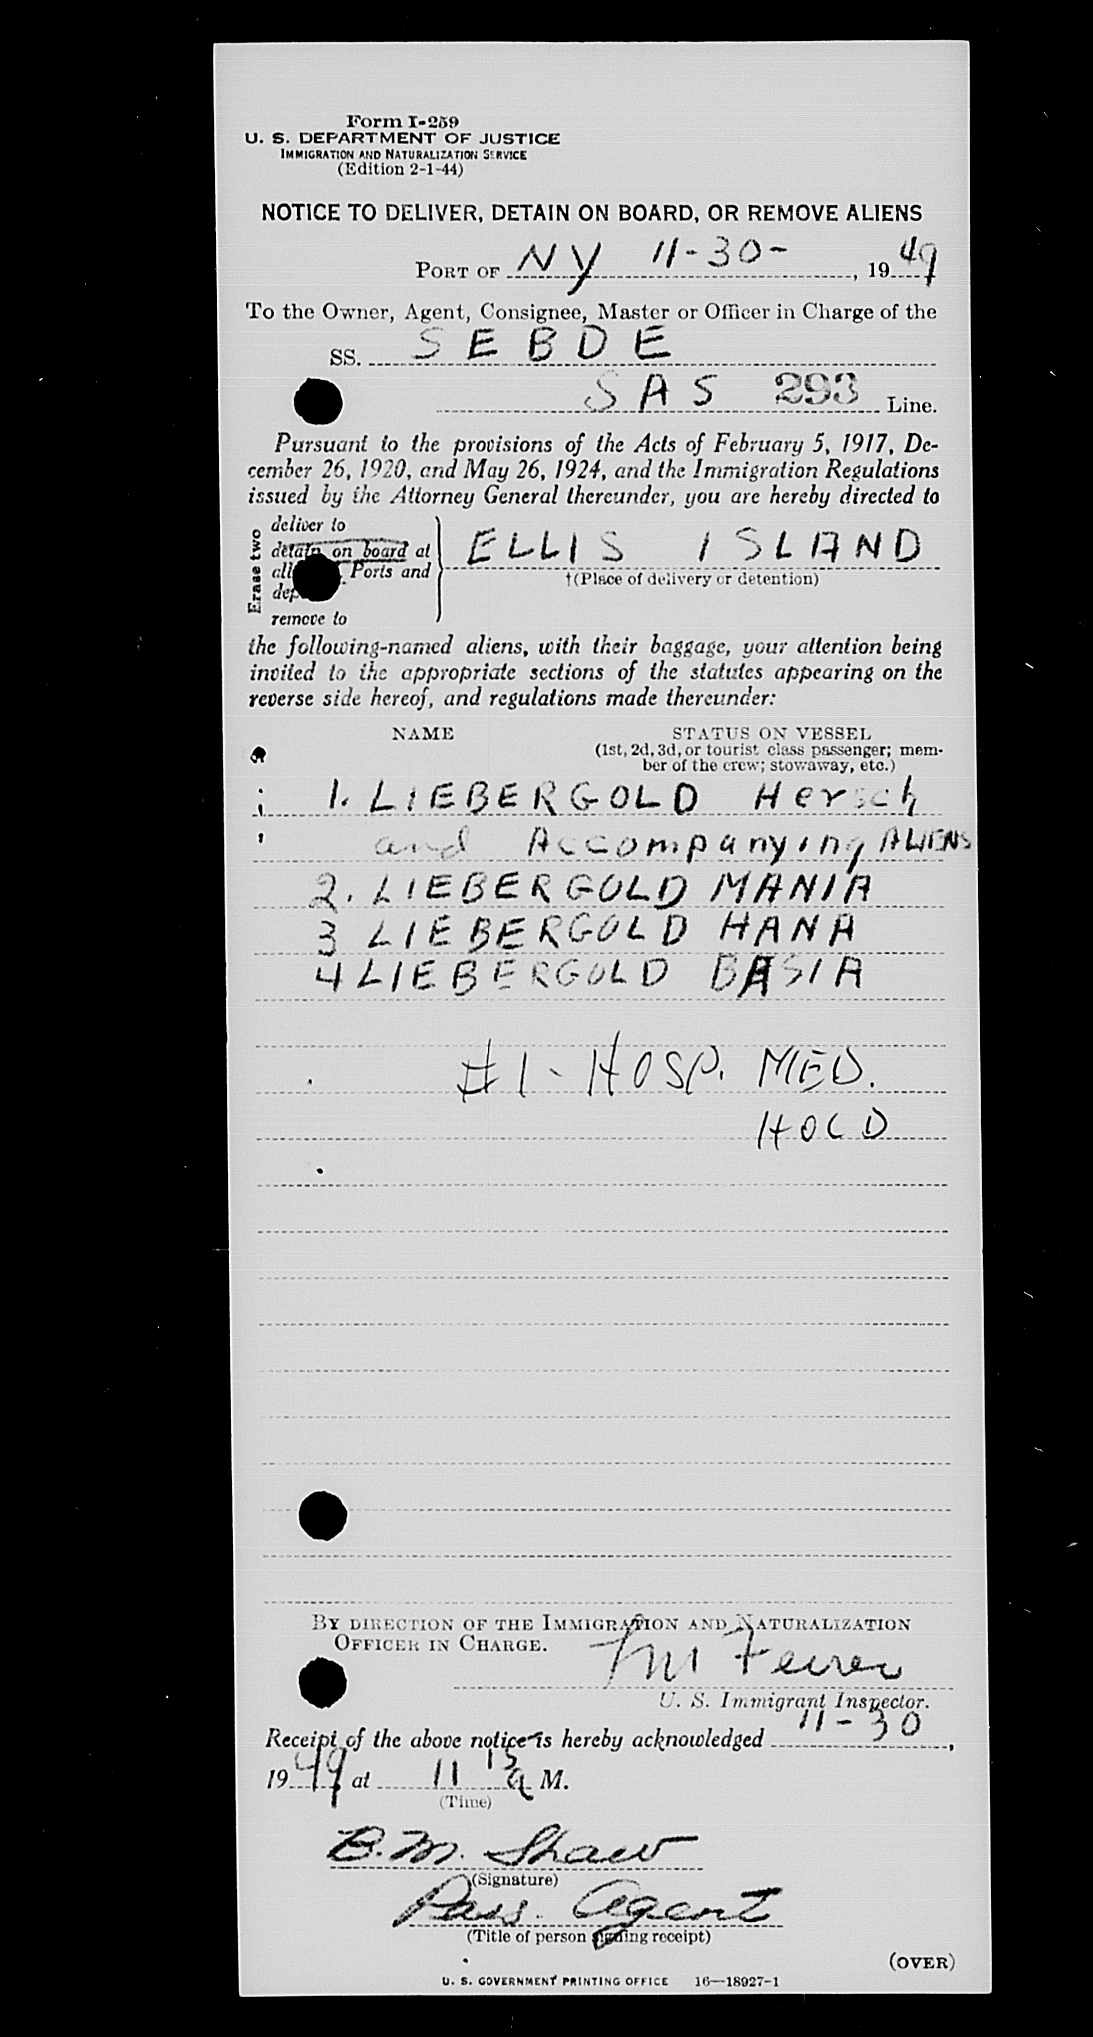 Form I-259
U. S. DEPARTMENT OF JUSTICE
IMMIGRATION AND NATURALIZATION SERVICE
(Edition 2-1-44)
NOTICE TO DELIVER, DETAIN ON BOARD, OR REMOVE ALIENS
PORT OF NY 11-30-, 1949
To the Owner, Agent, Consignee, Master or Officer in Charge of the
SS. SEBDE
SAS 293 Line.
Pursuant to the provisions of the Acts of February 5, 1917, De-
cember 26, 1920, and May 26, 1924, and the Immigration Regulations
issued by the Attorney General thereunder, you are hereby directed to
Erase two
deliver to
detain on board at
Ports and
remove to
ELLIS ISLAND
†(Place of delivery or detention)
the following-named aliens, with their baggage, your attention being
invited to the appropriate sections of the statutes appearing on the
reverse side hereof, and regulations made thereunder:
NAME STATUS ON VESSEL
(1st, 2d, 3d, or tourist class passenger; mem-
ber of the crew; stowaway, etc.)
1. LIEBERGOLD Hersch
and Accompanying ALIENS
2. LIEBERGOLD MANIA
3 LIEBERGOLD HANA
4 LIEBERGOLD BASIA
#1 - HOSP. MED.
HOLD
BY DIRECTION OF THE IMMIGRATION AND NATURALIZATION
OFFICER IN CHARGE.
U. S. Immigrant Inspector.
Receipt of the above notice is hereby acknowledged 11-30,
1949 at 11 15 a M.
(Time)
B. M. Shaw
(Signature)
Pass. Agent
(Title of person signing receipt)
(OVER)
U. S. GOVERNMENT PRINTING OFFICE 16—18927-1